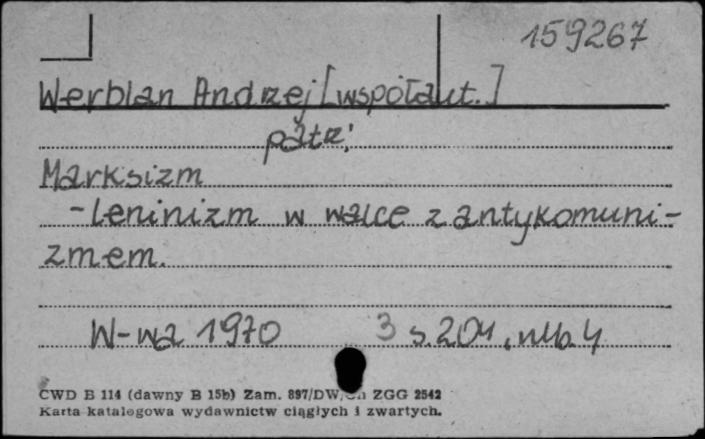 159267
Werblan Andrzej [współaut.]
patrz:
Marksizm
-leninizm w walce z antykomuni-
zmem.
W-wa 1970 3 s. 204, nlb. 4
CWD B 114 (dawny B 15b) Zam. 897/DW/ ZGG 2542
Karta katalogowa wydawnictw ciągłych i zwartych.